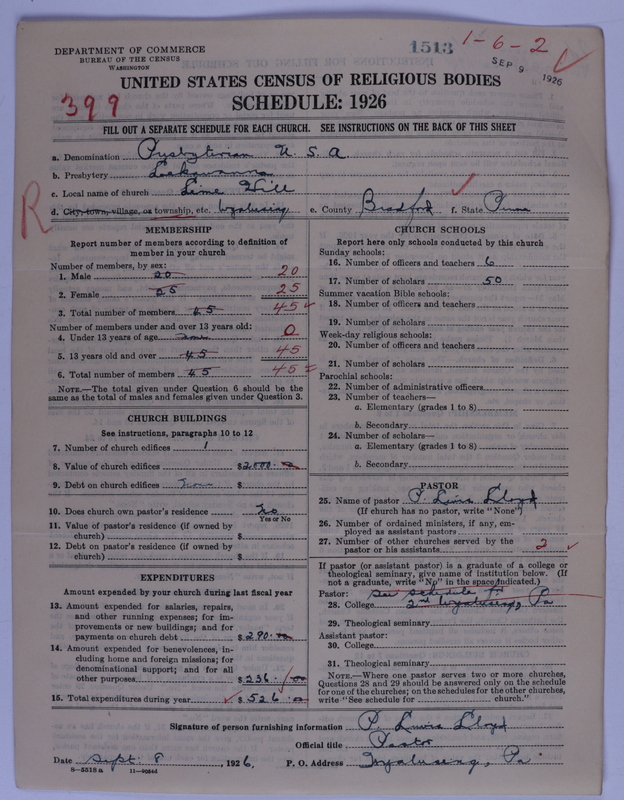 DEPARTMENT OF COMMERCE
BUREAU OF THE CENSUS
WASHINGTON
1513
1-6-2
SEP 9 1926
UNITED STATES CENSUS OF RELIGIOUS BODIES
399
SCHEDULE: 1926
FILL OUT A SEPARATE SCHEDULE FOR EACH CHURCH. SEE INSTRUCTIONS ON THE BACK OF THIS SHEET
a. Denomination Presbyterian U. S. A
b. Presbytery Lackawanna
c. Local name of church Lime Hill
R
d. City, town, village, or township, etc. Wyalusing e. County Bradford f. State Penna
MEMBERSHIP
Report number of members according to definition of
member in your church
Number of members, by sex:
1. Male 20 20
2. Female 25 25
3. Total number of members 45 45
Number of members under and over 13 years old:
4. Under 13 years of age none 0
5. 13 years old and over 45 45
6. Total number of members 45 45
NOTE.—The total given under Question 6 should be the
same as the total of males and females given under Question 3.
CHURCH BUILDINGS
See instructions, paragraphs 10 to 12
7. Number of church edifices 1
8. Value of church edifices $2000.00
9. Debt on church edifices None $
10. Does church own pastor's residence No
Yes or No
11. Value of pastor's residence (if owned by
church) $
12. Debt on pastor's residence (if owned by
church) $
EXPENDITURES
Amount expended by your church during last fiscal year
13. Amount expended for salaries, repairs,
and other running expenses; for im-
provements or new buildings; and for
payments on church debt $290.00
14. Amount expended for benevolences, in-
cluding home and foreign missions; for
denominational support; and for all
other purposes $236.00
15. Total expenditures during year $526.00
CHURCH SCHOOLS
Report here only schools conducted by this church
Sunday schools:
16. Number of officers and teachers 6
17. Number of scholars 50
Summer vacation Bible schools:
18. Number of officers and teachers
19. Number of scholars
Week-day religious schools:
20. Number of officers and teachers
21. Number of scholars
Parochial schools:
22. Number of administrative officers
23. Number of teachers—
a. Elementary (grades 1 to 8)
b. Secondary
24. Number of scholars—
a. Elementary (grades 1 to 8)
b. Secondary
PASTOR
25. Name of pastor P. Lloyd
(If church has no pastor, write "None")
26. Number of ordained ministers, if any, em-
ployed as assistant pastors
27. Number of other churches served by the
pastor or his assistants 2
If pastor (or assistant pastor) is a graduate of a college or
theological seminary, give name of institution below. (If
not a graduate, write "No" in the space indicated.)
Pastor: See schedule for
28. College 2nd Wyalusing, Pa
29. Theological seminary
Assistant pastor:
30. College
31. Theological seminary
NOTE.—Where one pastor serves two or more churches,
Questions 28 and 29 should be answered only on the schedule
for one of the churches; on the schedules for the other churches,
write "See schedule for church."
Signature of person furnishing information P. Lloyd
Official title Pastor
Date Sept 8, 1926. P. O. Address Wyalusing, Pa
8-5518a 11-9054d